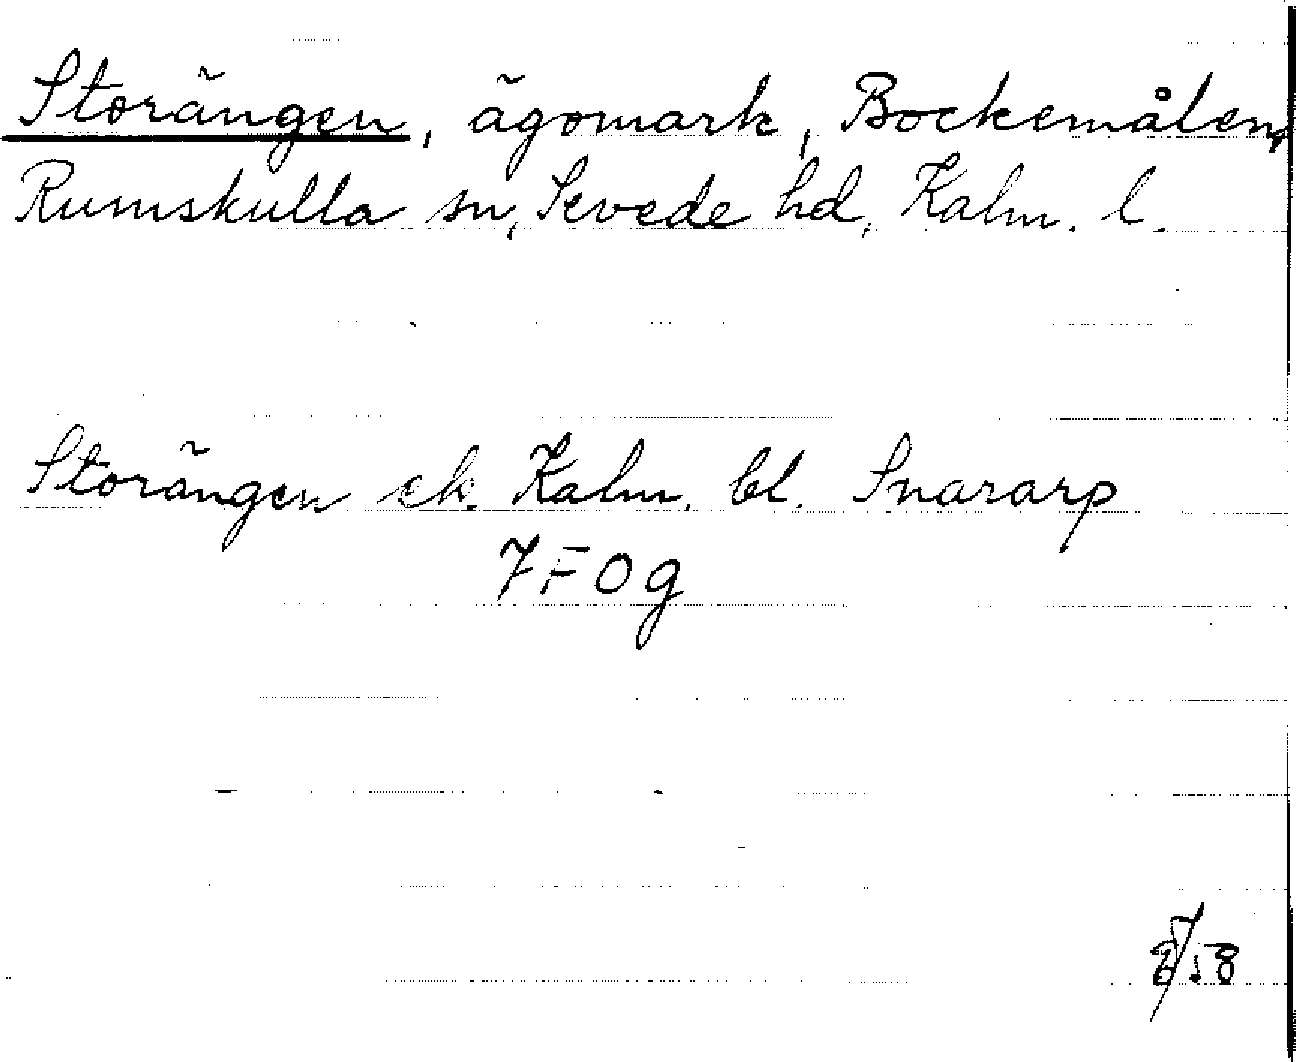 Storängen, ägomark, Bockemålen,
Rumskulla sn, Sevede hd, Kalm. l.
Storängen ek. Kalm. bl. Snararp
7 F 0 g